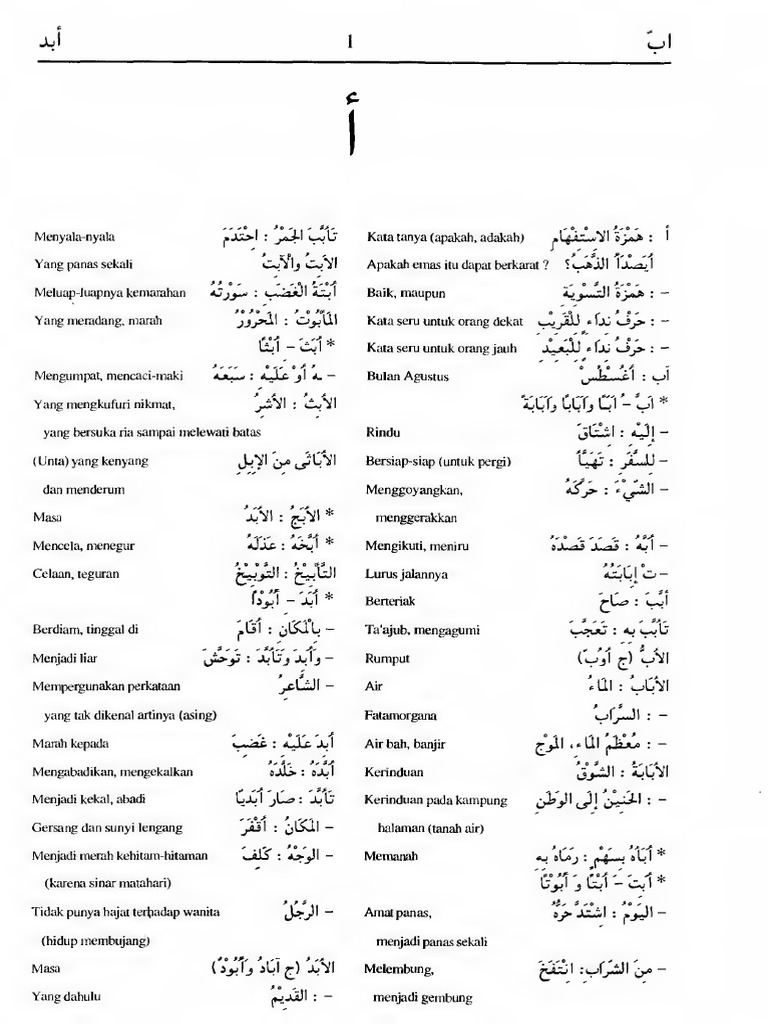 ابّ 1 أبد
أ
أ : هَمْزَةُ الاِسْتِفْهَامِ Kata tanya (apakah, adakah)
أَيَصْدَأُ الذَّهَبُ؟ Apakah emas itu dapat berkarat ?
- : هَمْزَةُ التَّسْوِيَةِ Baik, maupun
- : حَرْفُ نِدَاءٍ لِلْقَرِيْبِ Kata seru untuk orang dekat
- : حَرْفُ نِدَاءٍ لِلْبَعِيْدِ Kata seru untuk orang jauh
آب : أَغُسْطُسْ Bulan Agustus
* اَبَّ – اَبًّا وَاَبَابًا وَاَبَابَةً
- إِلَيْهِ : اِشْتَاقَ Rindu
- لِلسَّفَرِ : تَهَيَّأَ Bersiap-siap (untuk pergi)
- الشَّيْءَ : حَرَّكَهُ Menggoyangkan,
menggerakkan
- أَبَّهُ : قَصَدَ قَصْدَهُ Mengikuti, meniru
- تْ إِبَابَتُهُ Lurus jalannya
أَبَّبَ : صَاحَ Berteriak
تَأَبَّبَ بِهِ : تَعَجَّبَ Ta'ajub, mengagumi
الأَبُّ (ج أَوُبّ) Rumput
الأَبَابُ : المَاءُ Air
- : السَّرَابُ Fatamorgana
- : مُعْظَمُ المَاءِ، المَوْج Air bah, banjir
الأَبَابَةُ : الشَّوْقُ Kerinduan
- : الحَنِيْنُ إِلَى الوَطَنِ Kerinduan pada kampung
halaman (tanah air)
* أَبَأَهُ بِسَهْمٍ : رَمَاهُ بِهِ Memanah
* أَبَتَ – أَبْتًا وَ أُبُوْتًا
- اليَوْمُ : اِشْتَدَّ حَرُّهُ Amat panas,
menjadi panas sekali
- مِنَ الشَّرَابِ: اِنْتَفَخَ Melembung,
menjadi gembung
تَأَبَّتَ الجَمْرُ : اِحْتَدَمَ Menyala-nyala
الأَبْتُ وَالْآبِتُ Yang panas sekali
أَبْتَةُ الْغَضَبِ : سَوْرَتُهُ Meluap-luapnya kemarahan
المَأْبُوْتُ : المَحْرُوْرُ Yang meradang, marah
* أَبَثَ – أَبْثًا
- ـهُ أَوْ عَلَيْهِ : سَبَعَهُ Mengumpat, mencaci-maki
الأَبِثُ : الأَشِرُ Yang mengkufuri nikmat,
yang bersuka ria sampai melewati batas
الأَبَاثَى مِنَ الإِبِلِ (Unta) yang kenyang
dan menderum
* الأَبَجُ : الأَبَدُ Masa
* أَبَّخَهُ : عَذَلَهُ Mencela, menegur
التَّأْبِيْخُ : التَّوْبِيْخُ Celaan, teguran
* أَبَدَ – أُبُوْدًا
- بِالْمَكَانِ : أَقَامَ Berdiam, tinggal di
- وَأَبِدَ وَتَأَبَّدَ : تَوَحَّشَ Menjadi liar
- الشَّاعِرُ Mempergunakan perkataan
yang tak dikenal artinya (asing)
أَبِدَ عَلَيْهِ : غَضِبَ Marah kepada
أَبَّدَهُ : خَلَّدَهُ Mengabadikan, mengekalkan
تَأَبَّدَ : صَارَ أَبَدِيًّا Menjadi kekal, abadi
- المَكَانُ : أَقْفَرَ Gersang dan sunyi lengang
- الوَجْهُ : كَلِفَ Menjadi merah kehitam-hitaman
(karena sinar matahari)
- الرَّجُلُ Tidak punya hajat terhadap wanita
(hidup membujang)
الأَبَدُ (ج آبَادٌ وَأُبُوْدٌ) Masa
- : القَدِيْمُ Yang dahulu